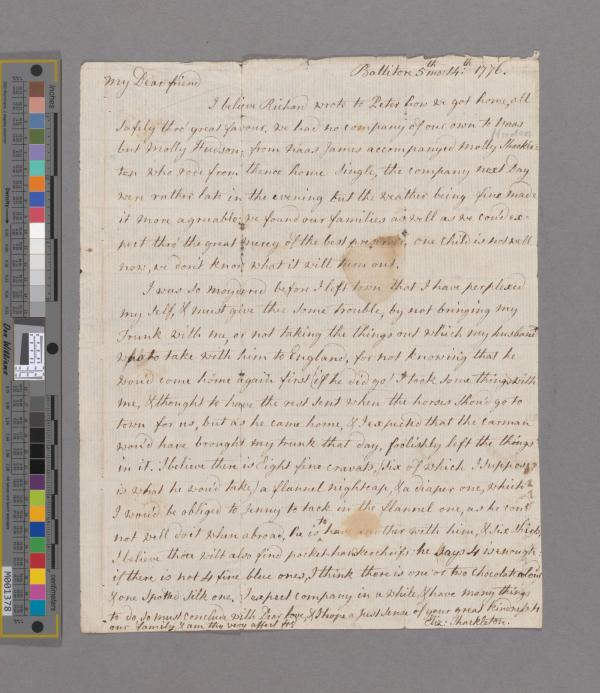 Ballitore 5th mo: 14th 1776.
My Dear friend
I believe Richard wrote to Peter how we got home, all
safely thro' great favour, we had no company of our own to Naas
but Molly Hudson, from naas James accompanyed Molly Shackle-
ton who rode from thence home single, the company next Day
were rather late in the evening but the weather being fine made
it more agreable, we found our families as well as we cou'd ex-
pect thro' the great mercy of the best one Child is not well
now, we don't know what it will turn out.
I was so before I left town that I have perplexed
my self, & must give thee some trouble, by not bringing my
Trunk with me, or not taking the things out which my husband
to take with him to England, for not knowing that he
wou'd come home again first (if he did go) I took some things with
me, & thought to have the rest sent when the horses shou'd go to
town for us, but as he came home, & I expected that the carman
wou'd have brought my trunk that day, foolishly left the things
in it. I believe there is Eight fine cravats, (six of which I suppose
is what he wou'd take) a flannel nightcap, & a diaper one, which
I wou'd be obliged to Jenny to tack in the flannel one, as he can't
not well do it when abroad, he is to have another with him, & six Shirts,
I believe thou wilt also find pocket handkercheifs he says 4 is enough
if there is not 4 fine blue ones, I think there is one or two chocolate colour
& one spotted silk one. I expect company in a while, & have many things
to do, so must conclude with Dear love, & I hope a just sense of your great kindness to
our family, & am thy very affect: frd
Eliz: Shackleton.
inches
centimetres
Don Williams
M001378